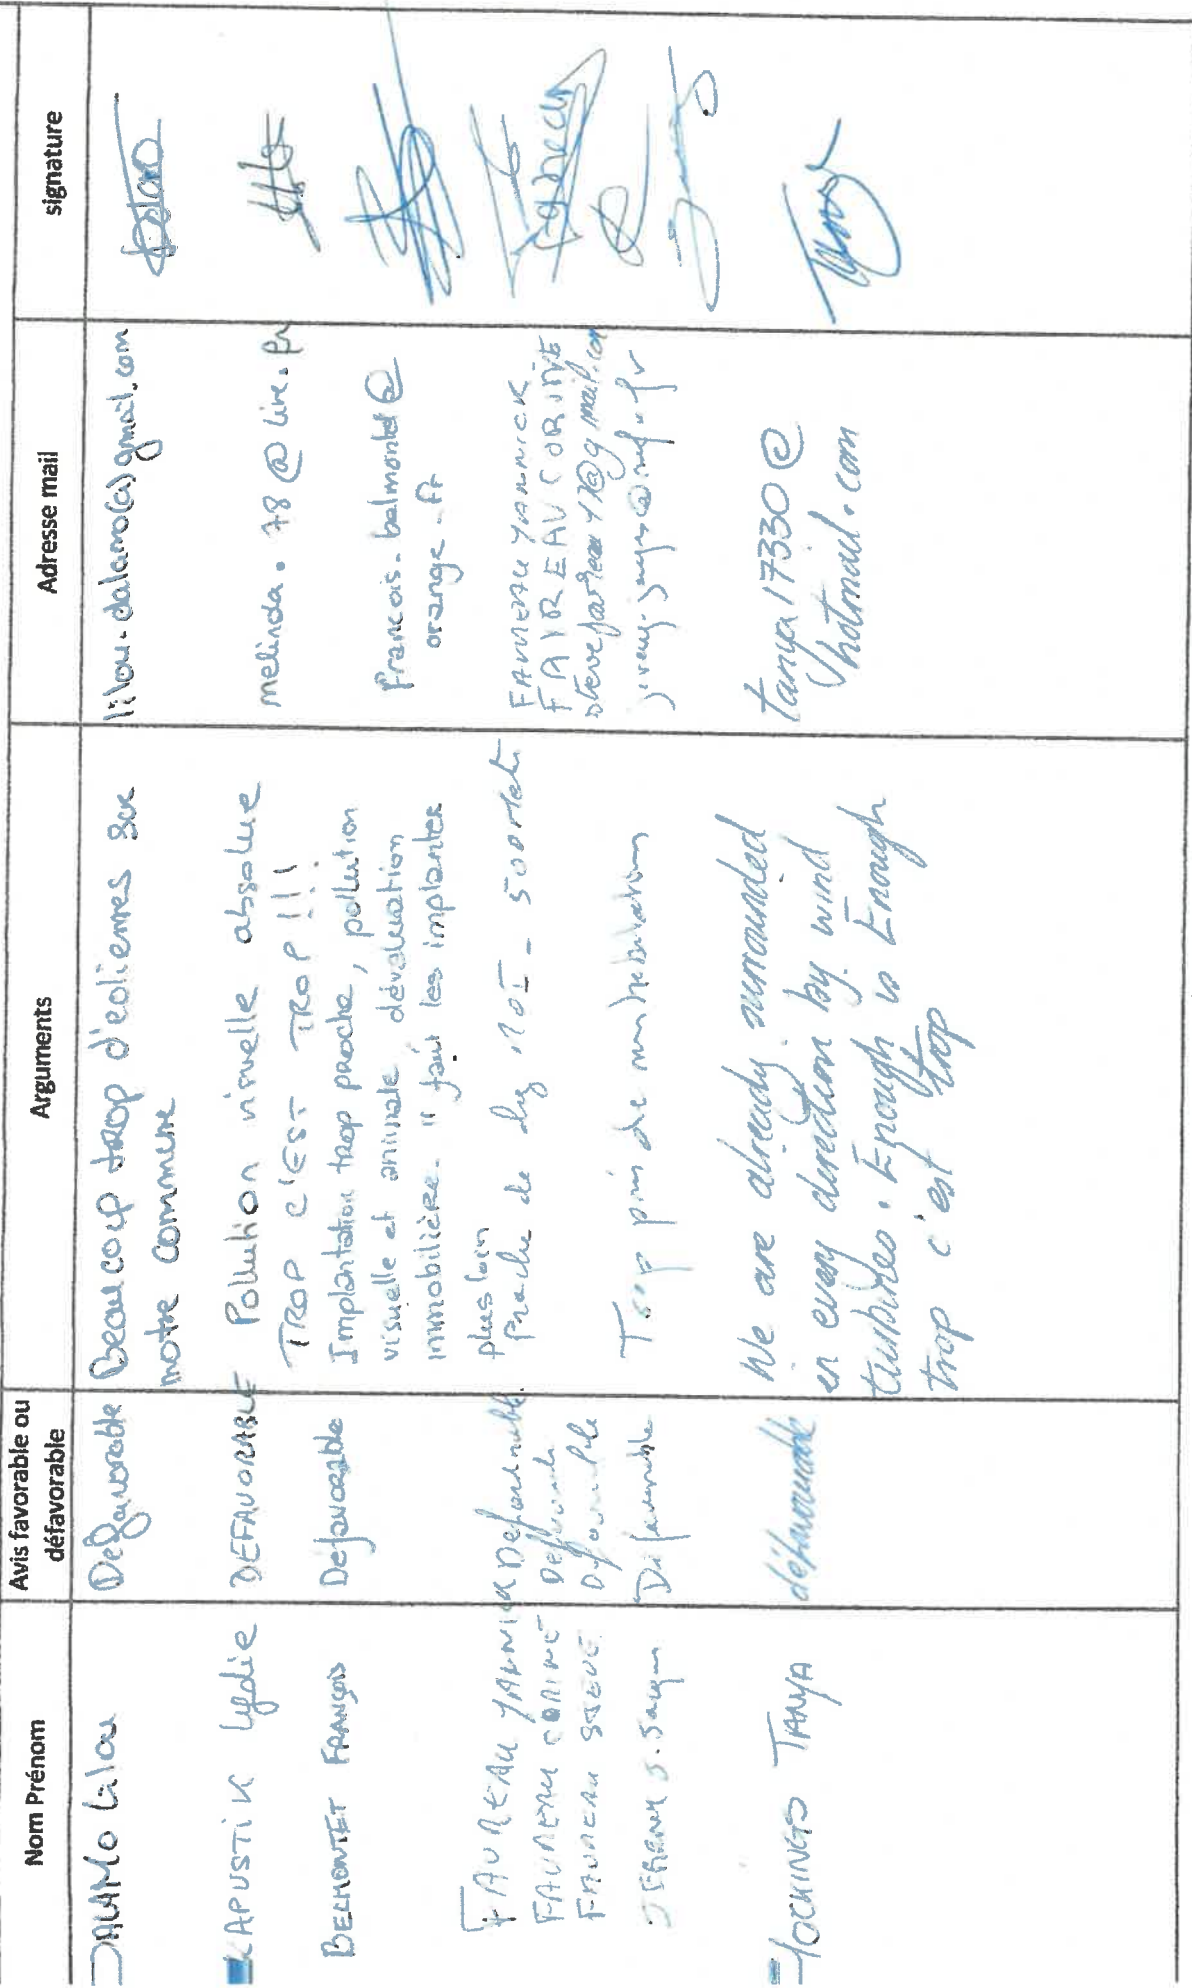 Nom Prénom
Avis favorable ou
défavorable
Arguments
Adresse mail
signature
DALAMO Lilou
Defavorable
Beaucoup trop d'eoliennes sur
notre commune
lilou.dalamo(a)gmail.com
KAPUSTIK Lydie
DEFAVORABLE
Pollution visuelle absolue
TROP C'EST TROP !!!
melinda.78@live.fr
BELMONTET François
Défavorable
Implantation trop proche, pollution
visuelle et animale, dévaluation
immobilière. Il faut les implanter
plus loin
Francois.belmontet@
orange.fr
FAVREAU YANNICK
Défavorable
Proche de
500 mètres
FAVREAU YANNICK
FAVREAU CORINE
Defavorable
FAVREAU CORINE
FAVREAU STEVE
Defavorable
J. Jacques
Défavorable
Trop près de mon habitation
HOCKINGS TANYA
défavorable
We are already surrounded
in every direction by wind
turbines. Enough is Enough
trop c'est trop
tanya17330@
hotmail.com